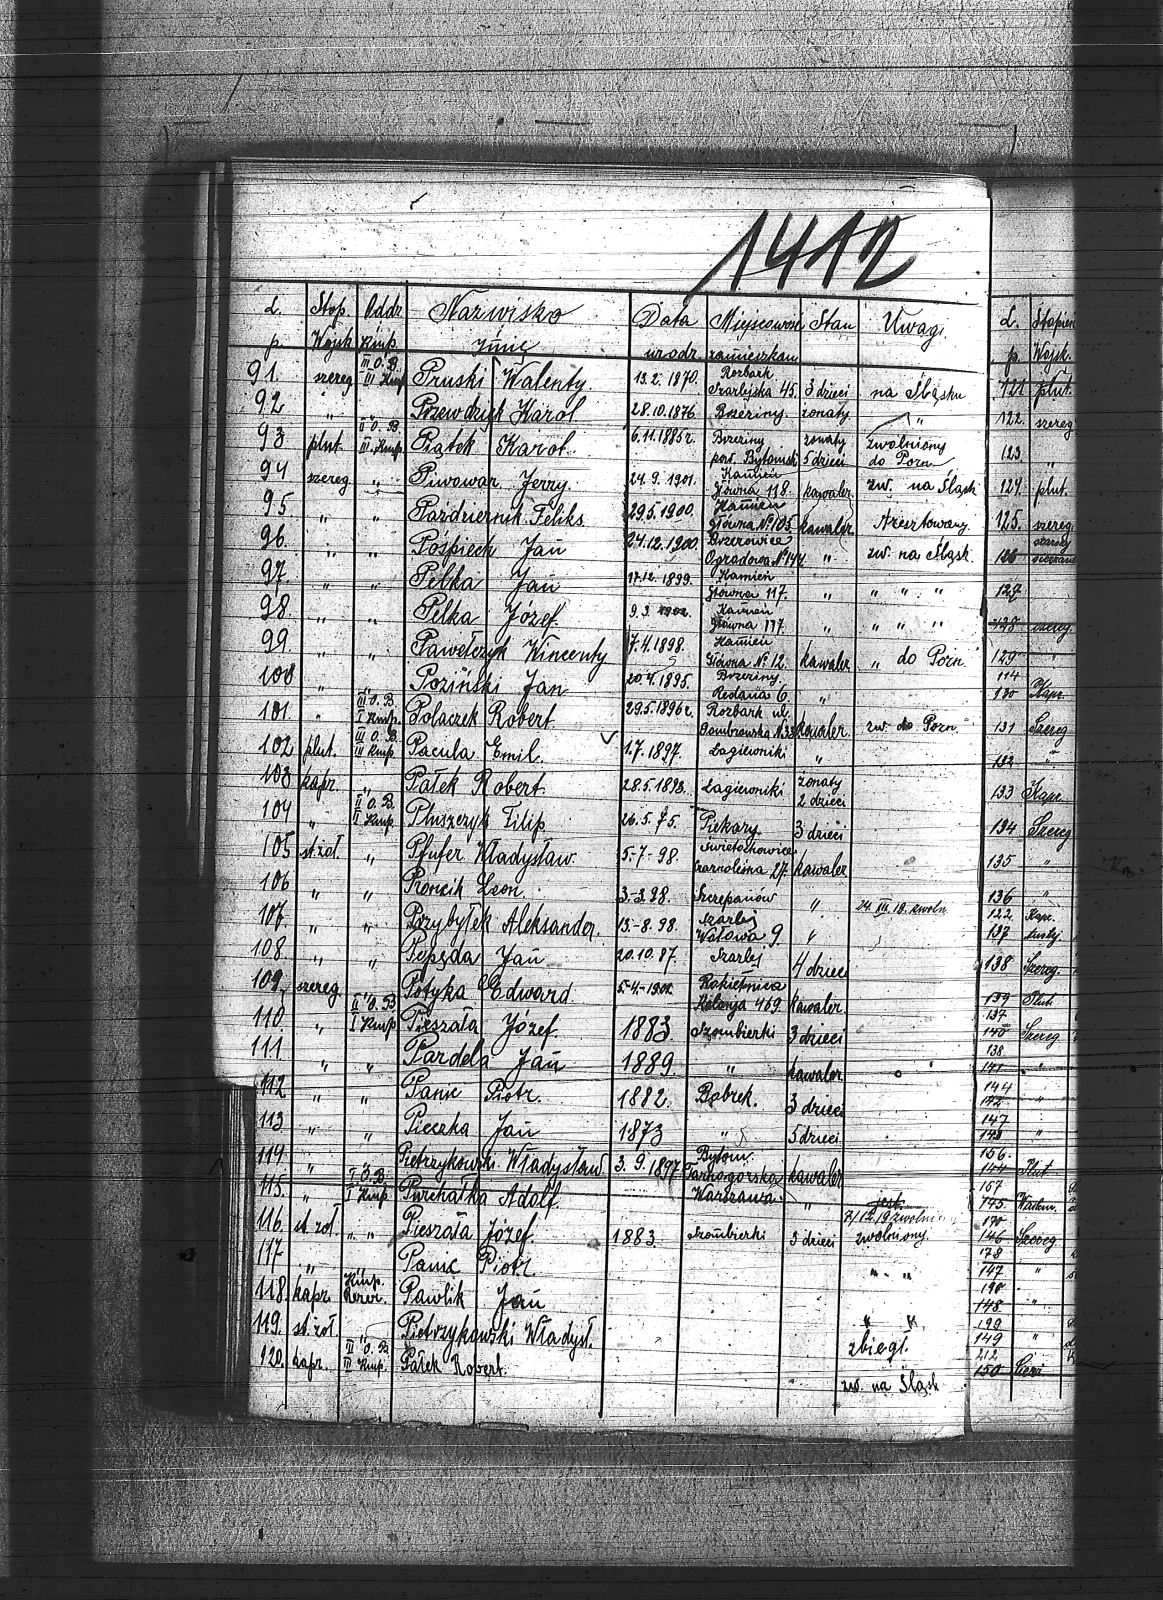 1412
L. p. Stop. Wojsk Oddz. Kmp. Nazwisko Imię Data urodz. Miejscowość zamieszkan Stan Uwagi
91. szereg III O.B. III Kmp Pruski Walenty. 13.2.1870. Rozbark Szarlejska 45. 3 dzieci na Śląsku
92 " " Karol 28.10.1876 Brzeziny. żonaty "
93 plut. II O.B. III. Kmp. Piątek Karol. 6.11.1885r. Brzeziny pow. Bytomski żonaty 5 dzieci zwolniony do Pozn
94 szereg " Piwowar Jerzy. 24.9.1901. Kamień Główna 118 kawaler. zw. na Śląsk
95 " " Październik Feliks 29.5.1900. Kamień Główna № 105 kawaler Aresztowany.
96. " " Pośpiech Jan 24.12.1900. Brzezowice Ogrodowa № 144 " zw. na Śląsk.
97 " " Pelka Jan 17.12.1899. Kamień Główna 117. " " " "
98. " " Pelka Józef. 9.3. Kamień Główna 117. " " " "
99 " " Pawełczyk Wincenty 7.4.1898. Kamień Główna № 12. kawaler " do Pozn.
100 " Poziński Jan 20.4.1895. Brzeziny. 6 "
101. " III O.B. I Kmp. Polaczek Robert 29.5.1896r. Rozbark ul. Dombrowska N. 33 kawaler. zw. do Pozn.
102 plut. III O.B. III Kmp Pacula Emil. 1.7.1897. Łagiewniki "
103 kapr. " Pałek Robert. 28.5.1893. Łagiewniki żonaty 2 dzieci
104 " II O.B. I Kmp Pluszczyk Filip 26.5.75. Piekary 3 dzieci
105 st. żoł. " Pfufer Władysław. 5.-7-98. Świętochowice Czarnoleśna 27. kawaler
106 " " Leon. 3-3.98. Szczepanów " 24. III. 19. zwoln.
107. " " Przybyłek Aleksander. 13.-8.98. Szarlej Wołowa 9 "
108. " " Pepęda Jan 20.10.87. Szarlej 4 dziec
109. szereg " Potyka Edward. 5-4-1902 Rokietnica Kolonja 469. kawaler.
110. " II O.B. I Kmp Pieszała Józef. 1883. Szombierki 3 dzieci
111. " " Pardela Jan 1889. " kawaler.
112 " " Panic Piotr. 1882. Bobrek. 3 dzieci
113 " " Pieczka Jan 1873 " 5 dzieci
114 " Pietrzykowski Władysław 3.9.1897 Bytom. Tarnogórska kawaler
115. " I Kmp. Purchałka Adolf. Warszawa " jest
116. st. żoł. " " Pieszała Józef. 1883. Szombierki 3 dzieci zwolniony.
117 " Panic Piotr. " "
118. kapr. Kmp. Rezer. Pawlik Jan
119. st. żoł " Pietrzykowski Władysł. " " zbiegł.
120. kapr. II O.B. III Kmp. Pałek Robert. zw. na Śląsk
L. p. Stopień Wojsk.
121 plut.
122. szereg
123 "
124 plut.
125. szereg.
126
127
128 szereg.
129 "
114
130 Kapr.
131 Szereg
132 "
133 Kapr.
134 Szereg
135 "
136 "
122 Kapr.
137
138 Szereg.
139 Plut.
137
140 Szereg
138
141 "
144
142 "
147
143 "
156.
144 Plut
167
145
170
146 Szereg
178
147 "
190
148 "
199
149 "
212
150